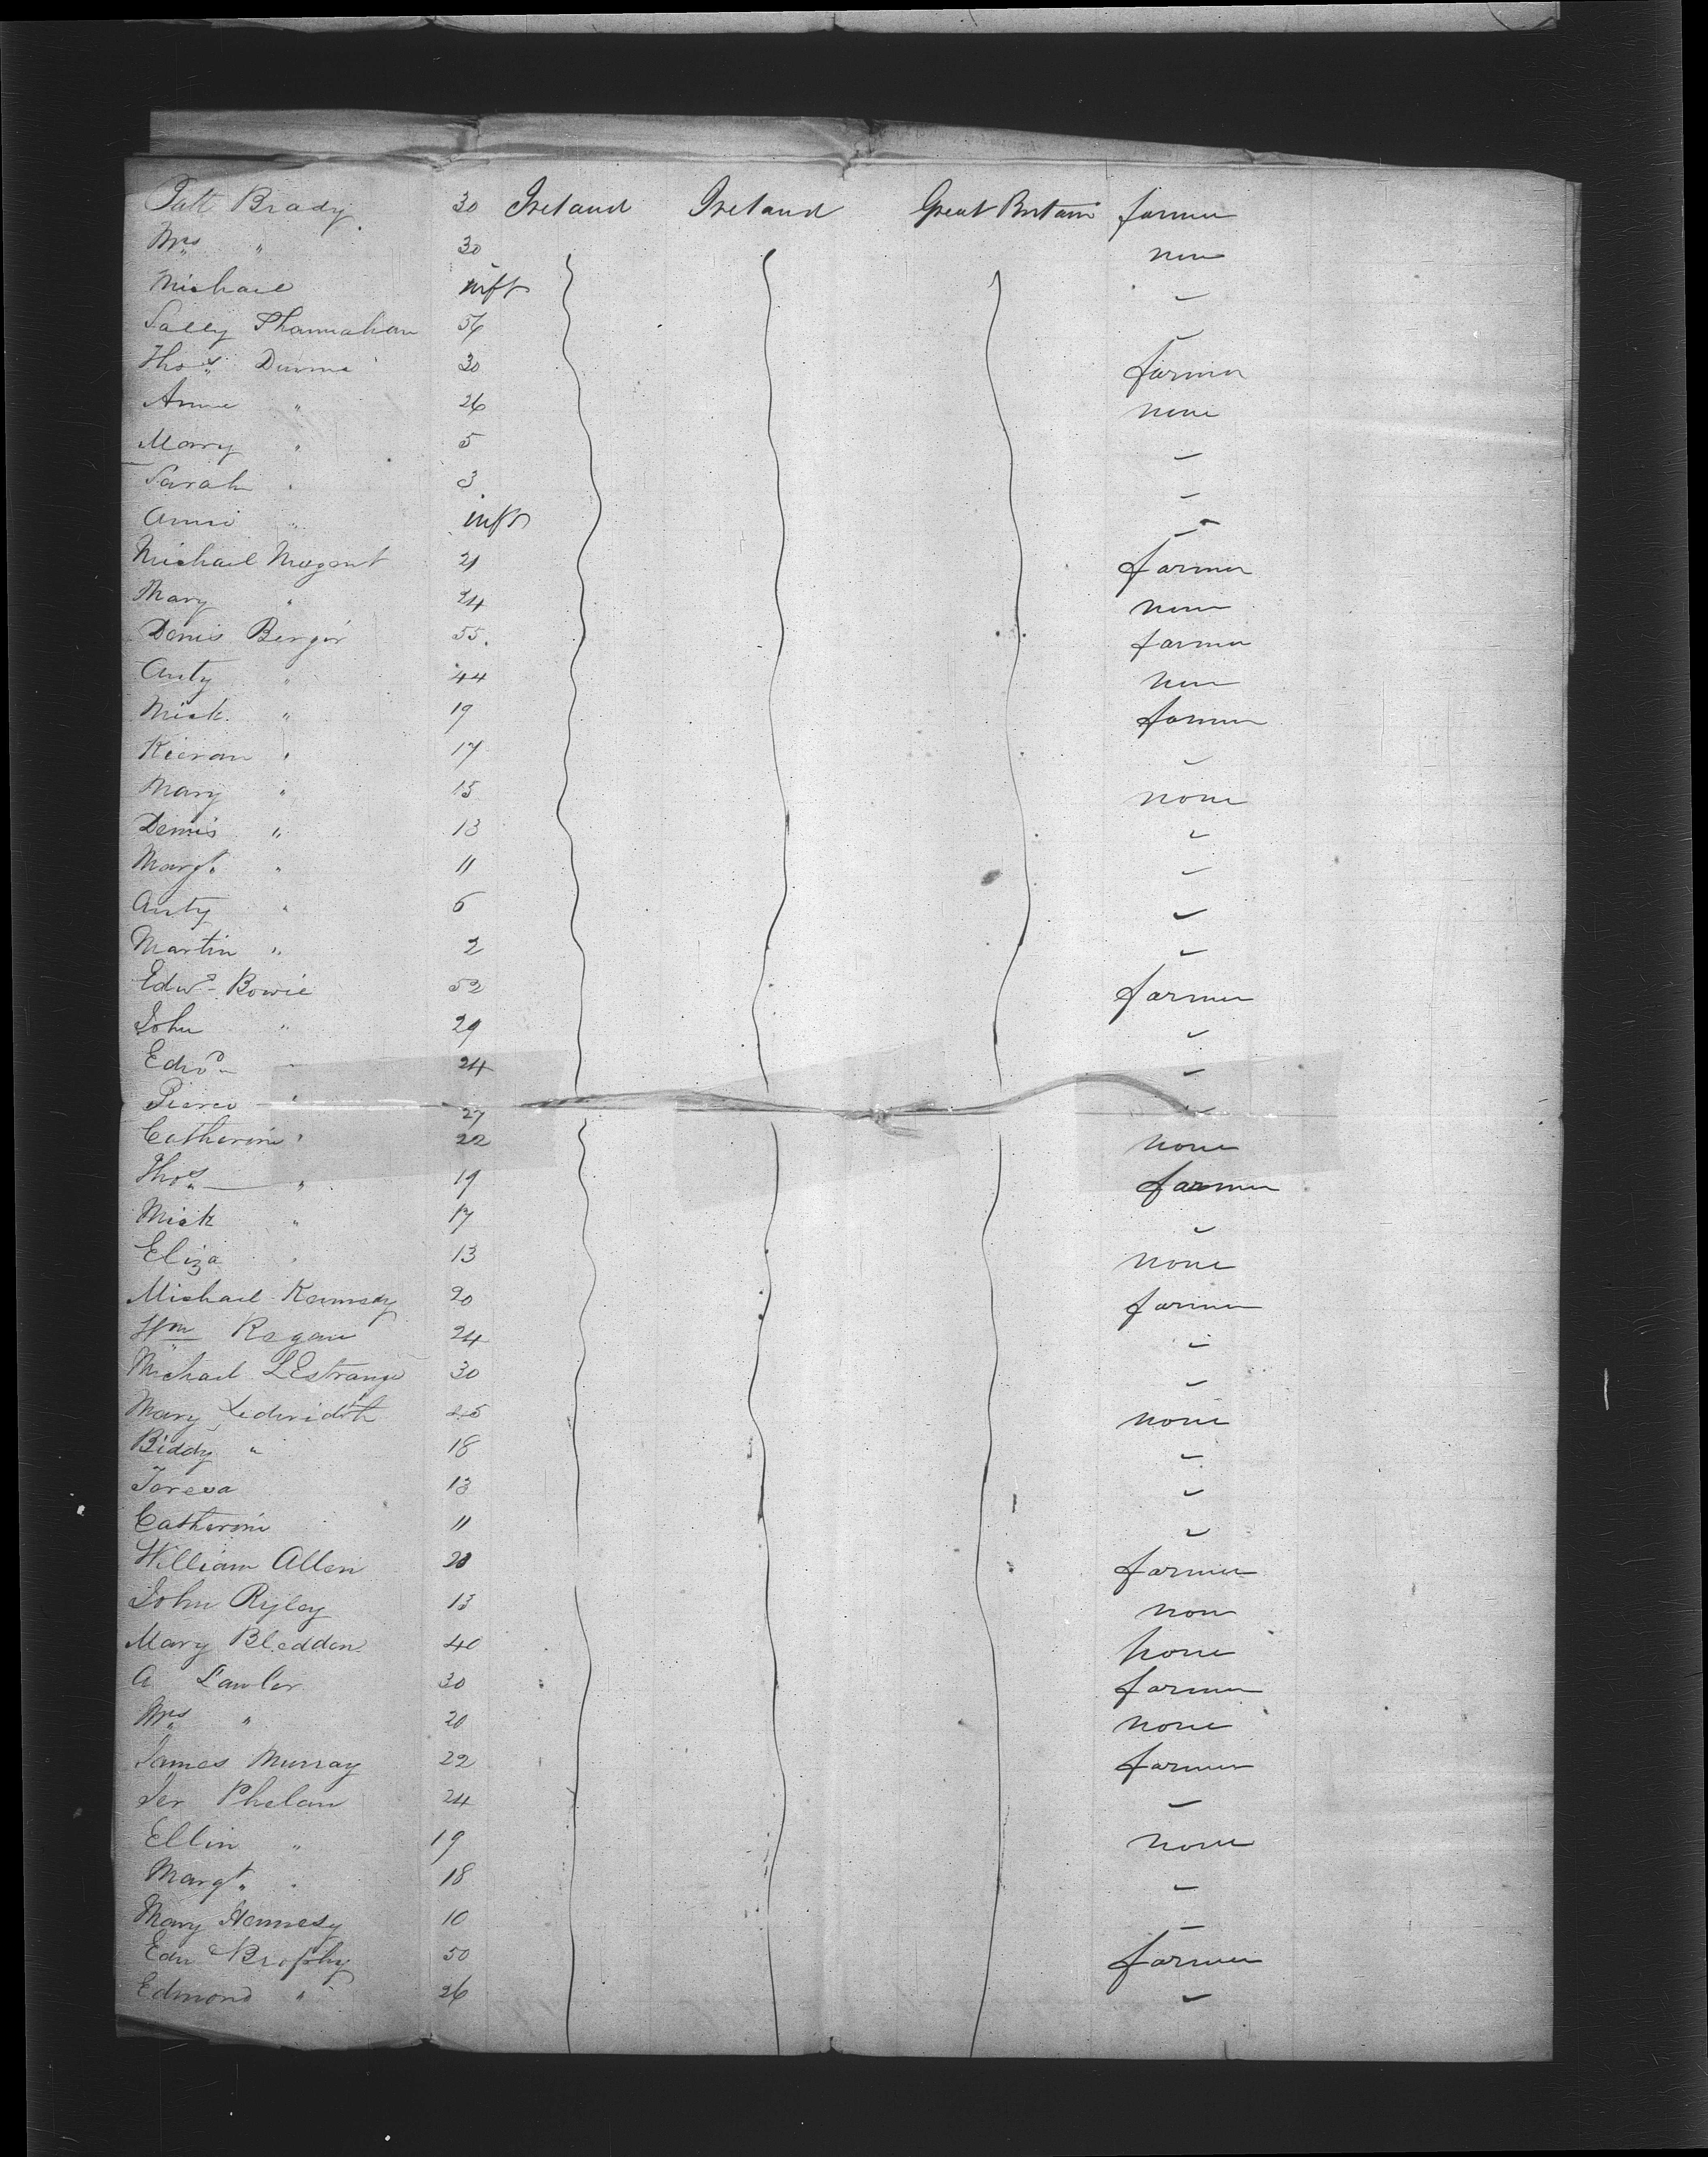 Patt Brady 30 Ireland Ireland Great Britain farmer
Mrs " 30 none
Michael inft
Sally Shannahan 56
Thos Dunne 30 farmer
Anne " 26 none
Mary " 5
Sarah " 3
Anne " inft
Michael Nugent 21 farmer
Mary " 24 none
Denis Bergin 55 farmer
Anty " 44 none
Mick " 19 farmer
Kieran " 17
Mary " 15 none
Dennis " 13
Margt " 11
Anty " 6
Martin " 2
Edwd Bowie 52 farmer
John " 29
Edwd 24
Pierce " 27
Catherine " 22 none
Thos " 19 farmer
Mick " 17
Eliza " 13 none
Michael Kennedy 20 farmer
Wm Ragan 24
Michael LEstrange 30
Mary none
Biddy " 18
Teresa 13
Catherine 11
William Allen farmer
John Ryley 13 none
Mary Bledden 40 none
A Lawler 30 farmer
Mrs " 20 none
James Murray 22 farmer
Jer Phelan 24
Ellin " 19 none
Margt " 18
Mary Hennesy 10
Edw Brophy 50 farmer
Edmond " 26